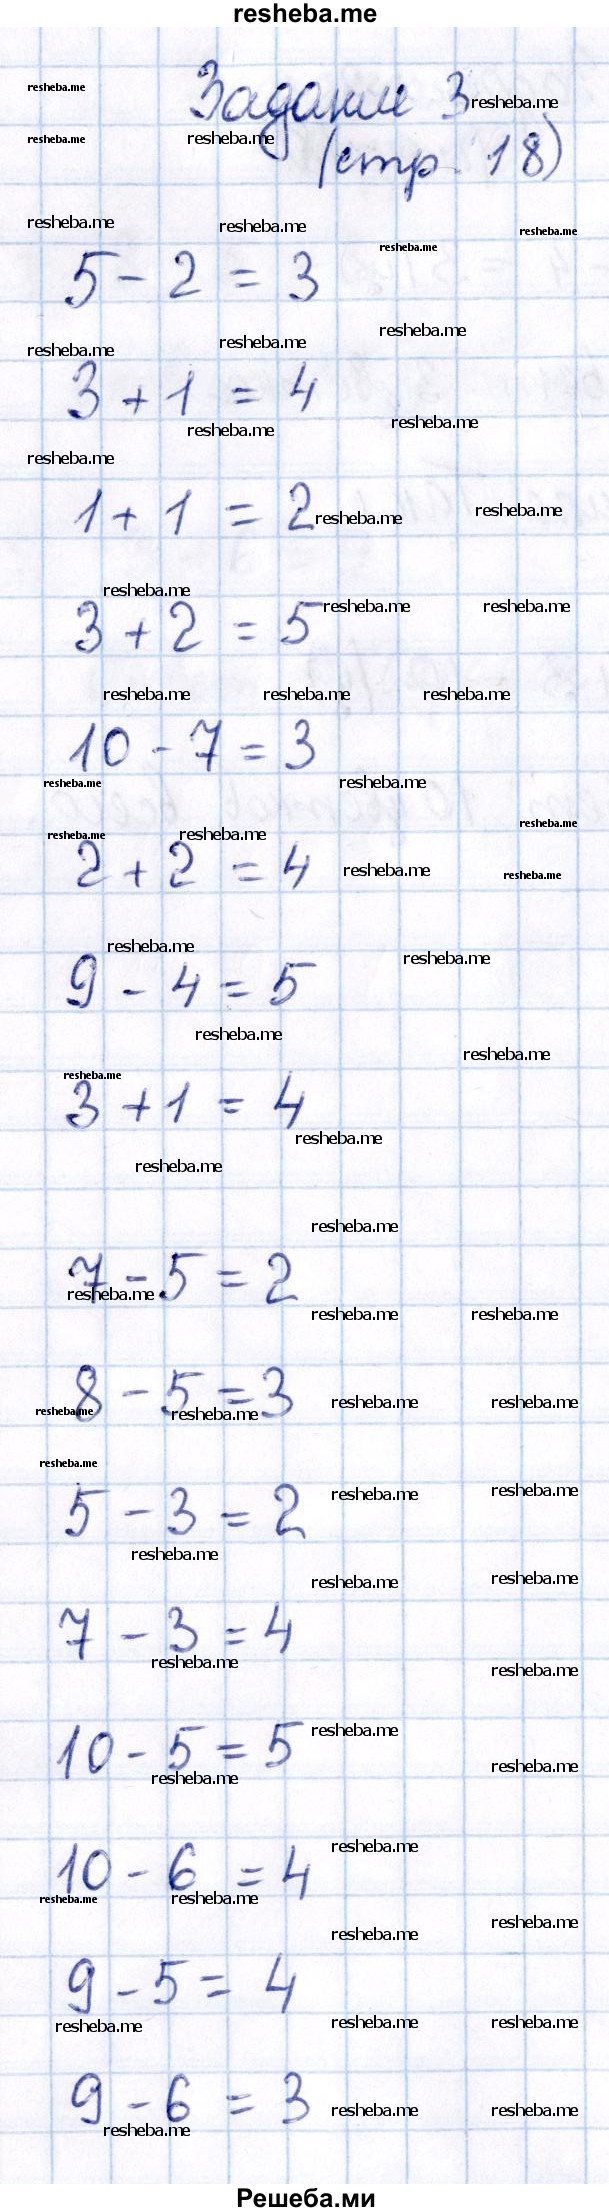 resheba.me
Задание 3
(стр. 18)
5 - 2 = 3
3 + 1 = 4
1 + 1 = 2
3 + 2 = 5
10 - 7 = 3
2 + 2 = 4
9 - 4 = 5
3 + 1 = 4
7 - 5 = 2
8 - 5 = 3
5 - 3 = 2
7 - 3 = 4
10 - 5 = 5
10 - 6 = 4
9 - 5 = 4
9 - 6 = 3
Решеба.ми